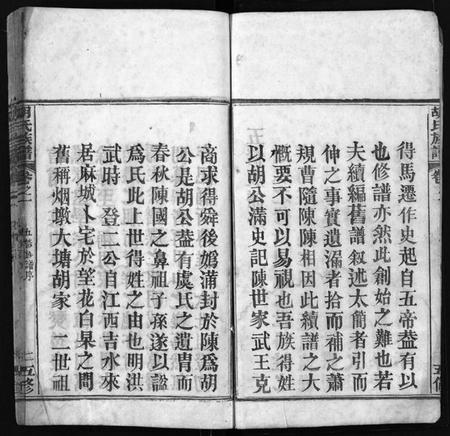 胡氏族譜
卷之
五修
得馬遷作史起自五帝葢有以
也修譜亦然此創始之難也若
夫續編舊譜叙述太簡者引而
伸之事實遺漏者拾而補之蕭
規曹隨陳陳相因此續譜之大
慨要不可以易視也吾族得姓
以胡公滿史記陳世家武王克
商求得舜後媯滿封於陳爲胡
公是胡公葢有虞氏之遺胄而
春秋陳國之鼻祖子孫遂以諡
爲氏此上世得姓之由也明洪
武時 登二公自江西吉水來
居麻城卜宅於望花白臯之間
舊稱烟墩大塘胡家 二世祖
胡氏族譜
卷之
二
五修